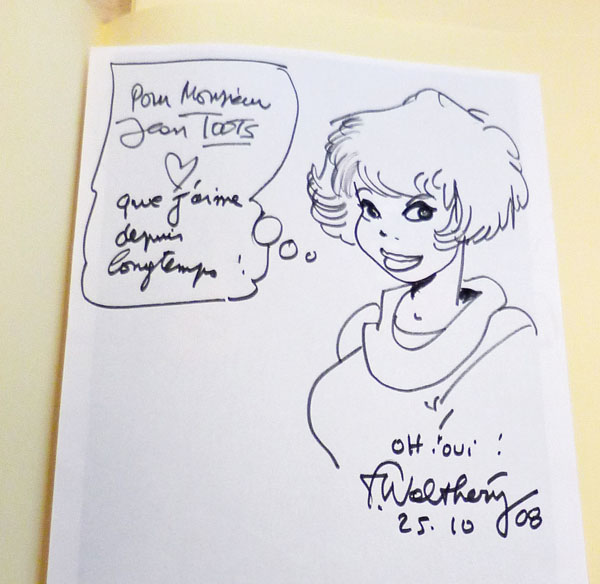 Pour Monsieur
Jean TOOTS
que j'aime
depuis
longtemps !
OH ! oui !
F. Walthéry
25.10 08